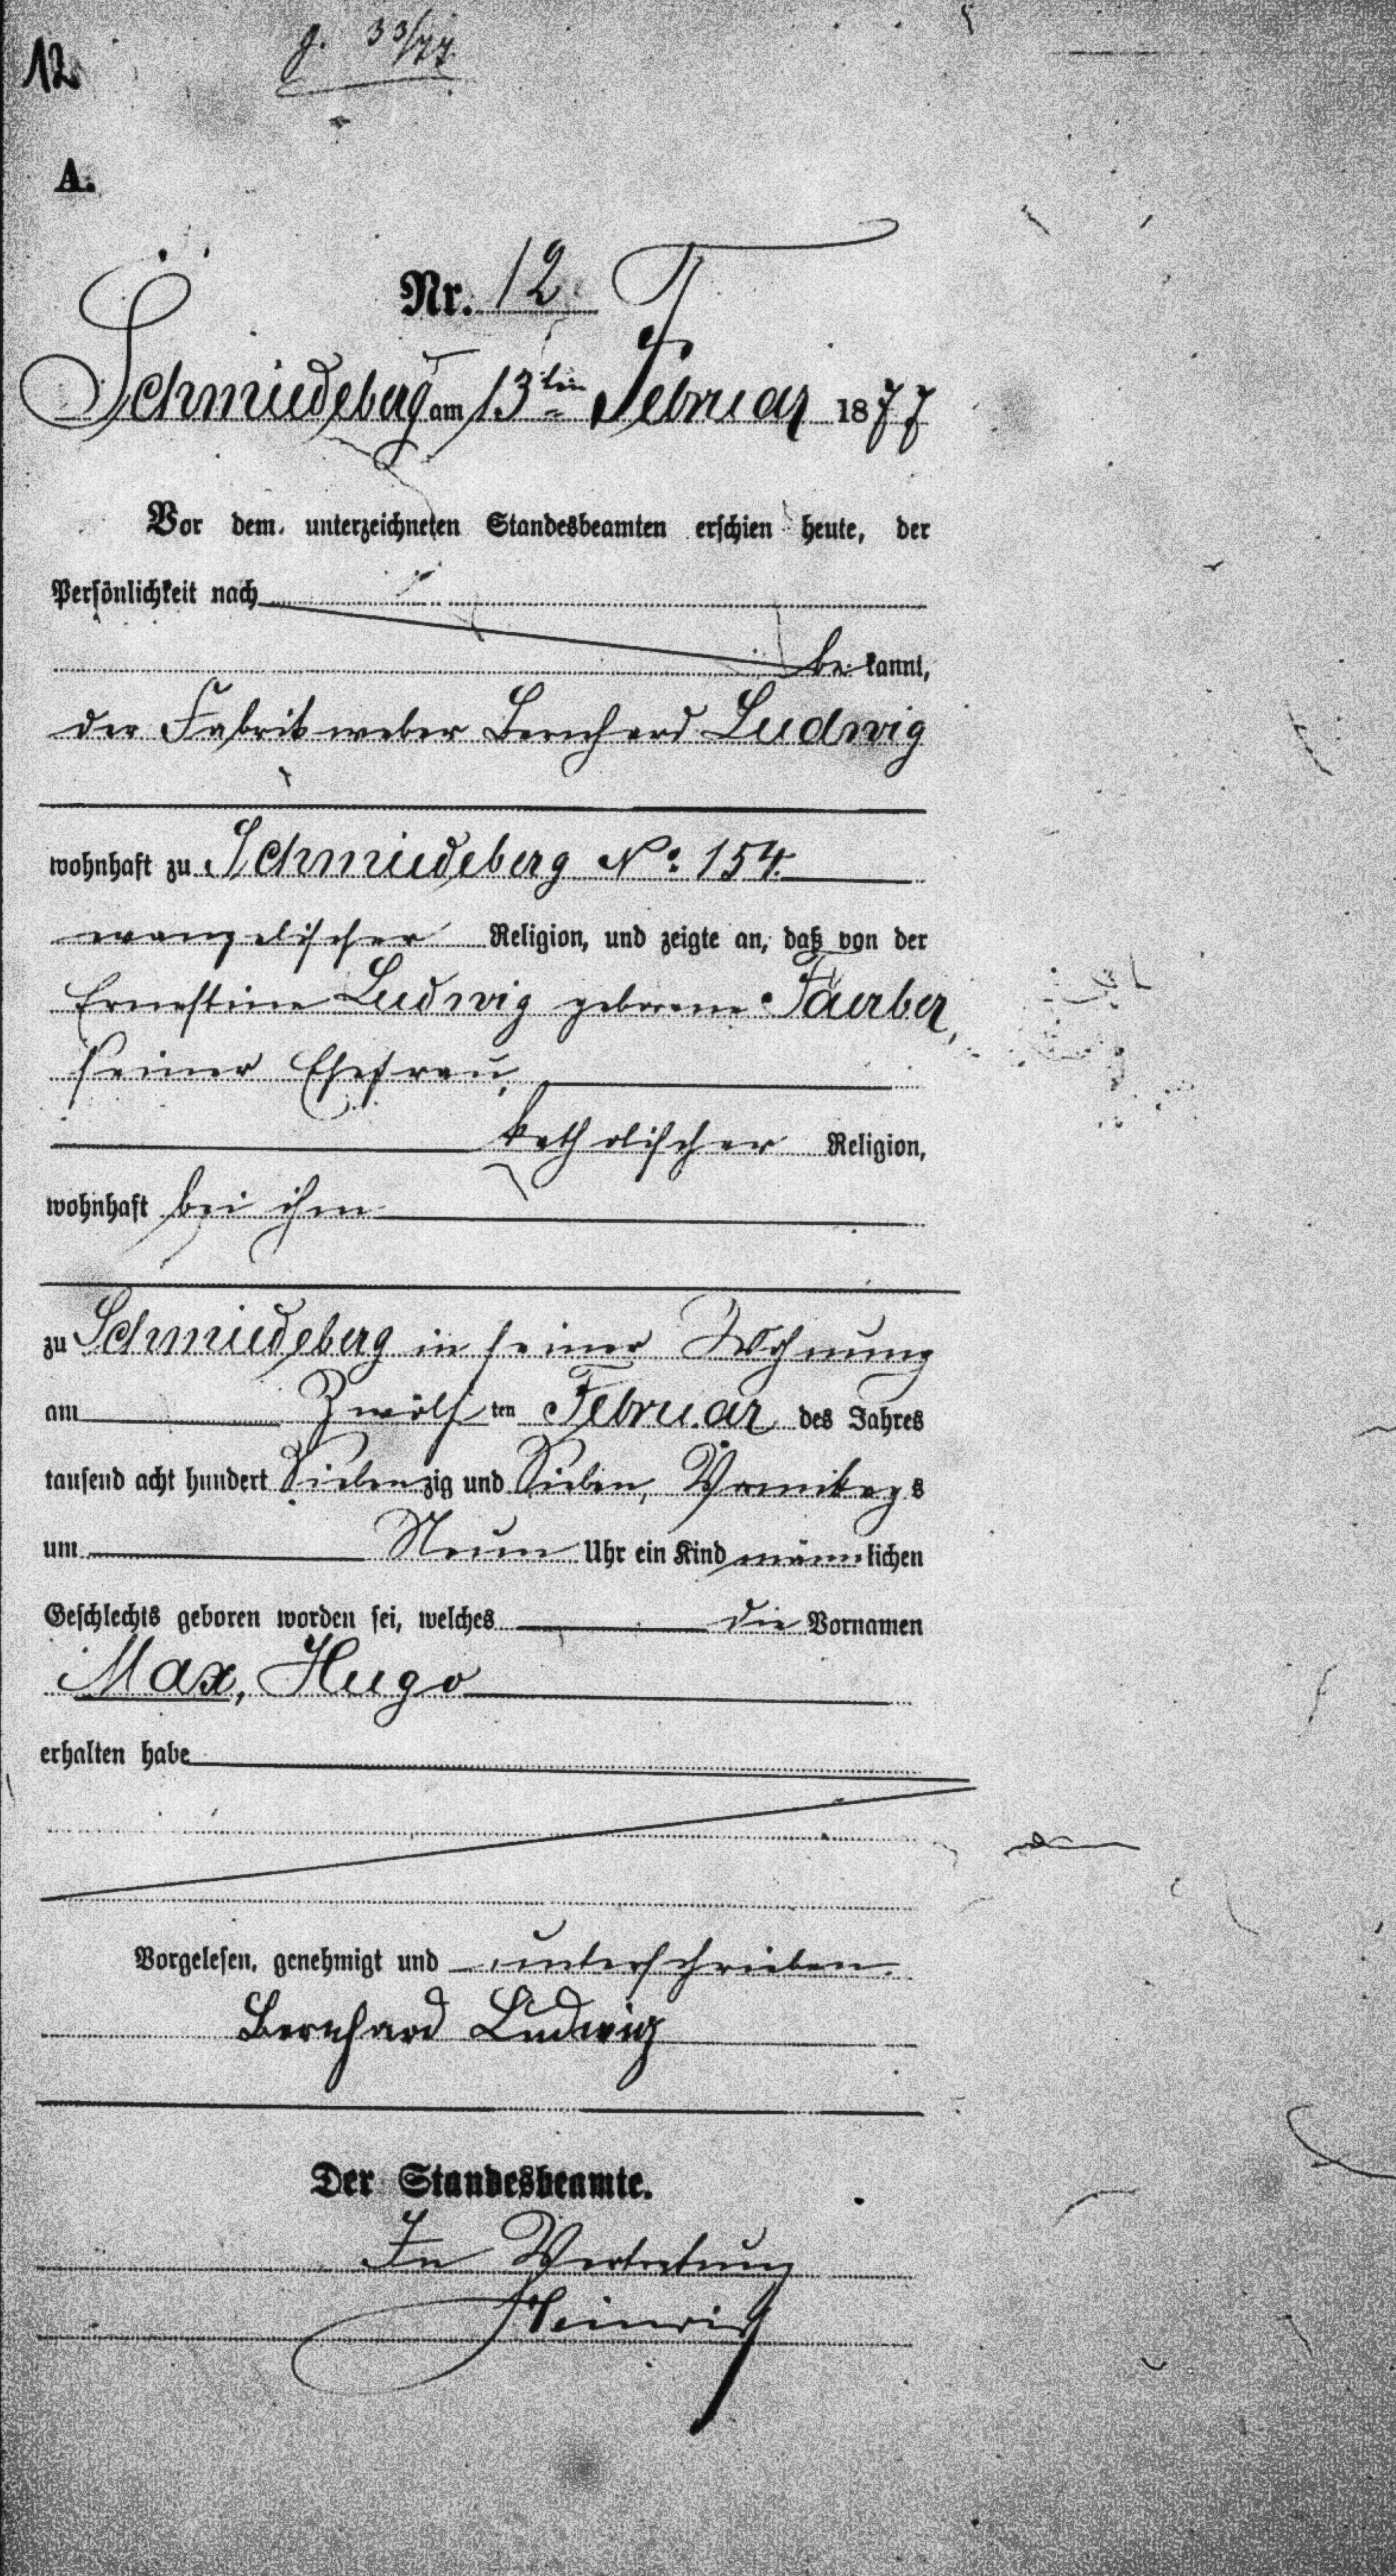 12
g. 33/77.
A.
Nr. 12
Schmiedeberg am 13ten Februar 1877
Vor dem unterzeichneten Standesbeamten erschien heute, der
Persönlichkeit nach
be kannt,
der Fabrikweber Bernhard Ludwig
wohnhaft zu Schmiedeberg No: 154.
evangelischer Religion, und zeigte an, daß von der
Ernestine Ludwig geborene Faerber,
seiner Ehefrau,
katholischer Religion,
wohnhaft bei ihm
zu Schmiedeberg in seiner Wohnung
am Zwölf ten Februar des Jahres
tausend acht hundert Siebenzig und Sieben, Vormittags
um Neun Uhr ein Kind männlichen
Geschlechts geboren worden sei, welches die Vornamen
Max, Hugo
erhalten habe
Vorgelesen, genehmigt und unterschrieben.
Bernhard Ludwig
Der Standesbeamte.
In Vertretung